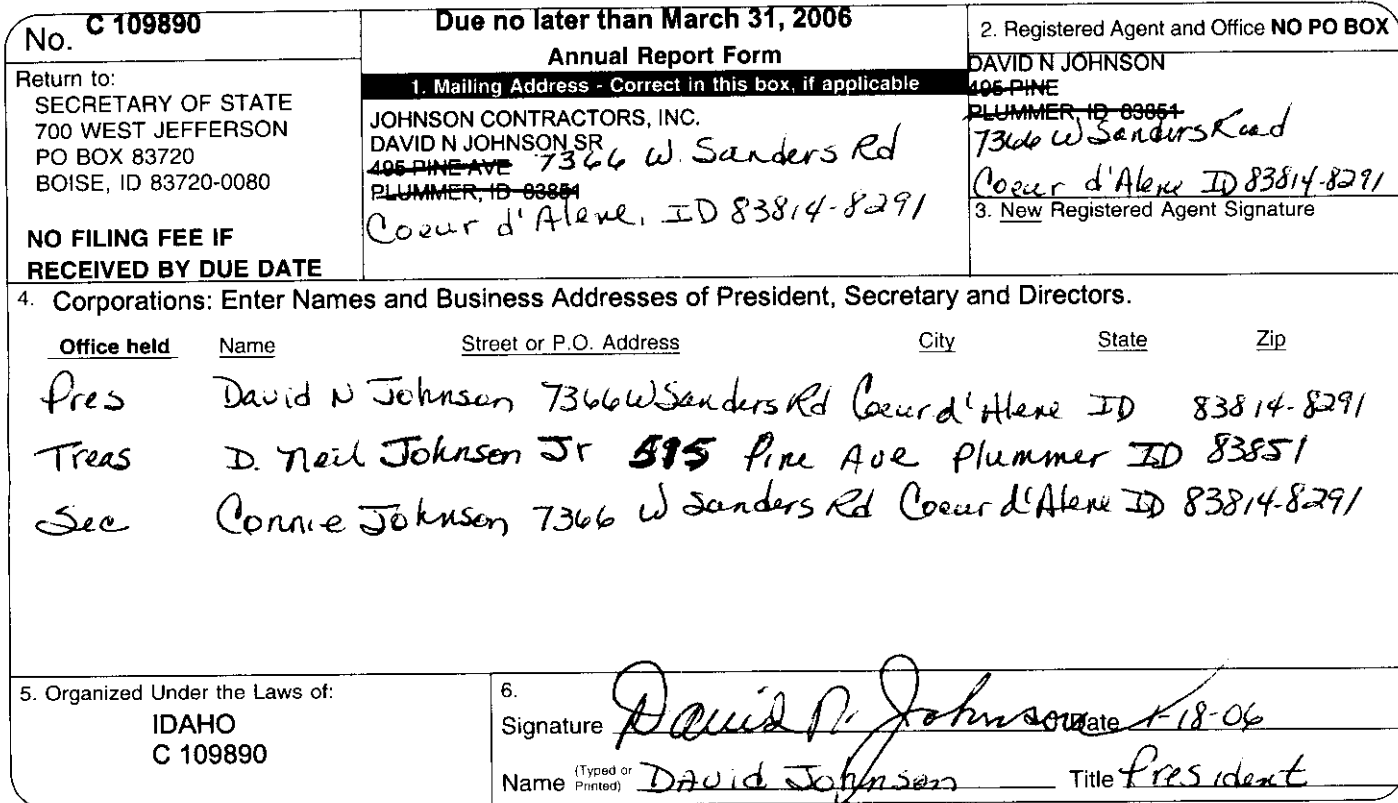 No. C 109890
Return to:
SECRETARY OF STATE
700 WEST JEFFERSON
PO BOX 83720
BOISE, ID 83720-0080
NO FILING FEE IF
RECEIVED BY DUE DATE
Due no later than March 31, 2006
Annual Report Form
1. Mailing Address - Correct in this box, if applicable
JOHNSON CONTRACTORS, INC.
DAVID N JOHNSON SR
495 PINE AVE 7366 W. Sanders Rd
PLUMMER, ID 83851
Coeur d'Alene, ID 83814-8291
2. Registered Agent and Office NO PO BOX
DAVID N JOHNSON
495 PINE
PLUMMER, ID 83851
7366 W Sanders Road
Coeur d'Alene ID 83814-8291
3. New Registered Agent Signature
4. Corporations: Enter Names and Business Addresses of President, Secretary and Directors.
Office held Name Street or P.O. Address City State Zip
Pres David N Johnson 7366 W Sanders Rd Coeur d'Alene ID 83814-8291
Treas D. Neil Johnson Jr 595 Pine Ave Plummer ID 83851
Sec Connie Johnson 7366 W Sanders Rd Coeur d'Alene ID 83814-8291
5. Organized Under the Laws of:
IDAHO
C 109890
6.
Signature David N. Johnson Date 1-18-06
Name (Typed or Printed) David Johnson Title President